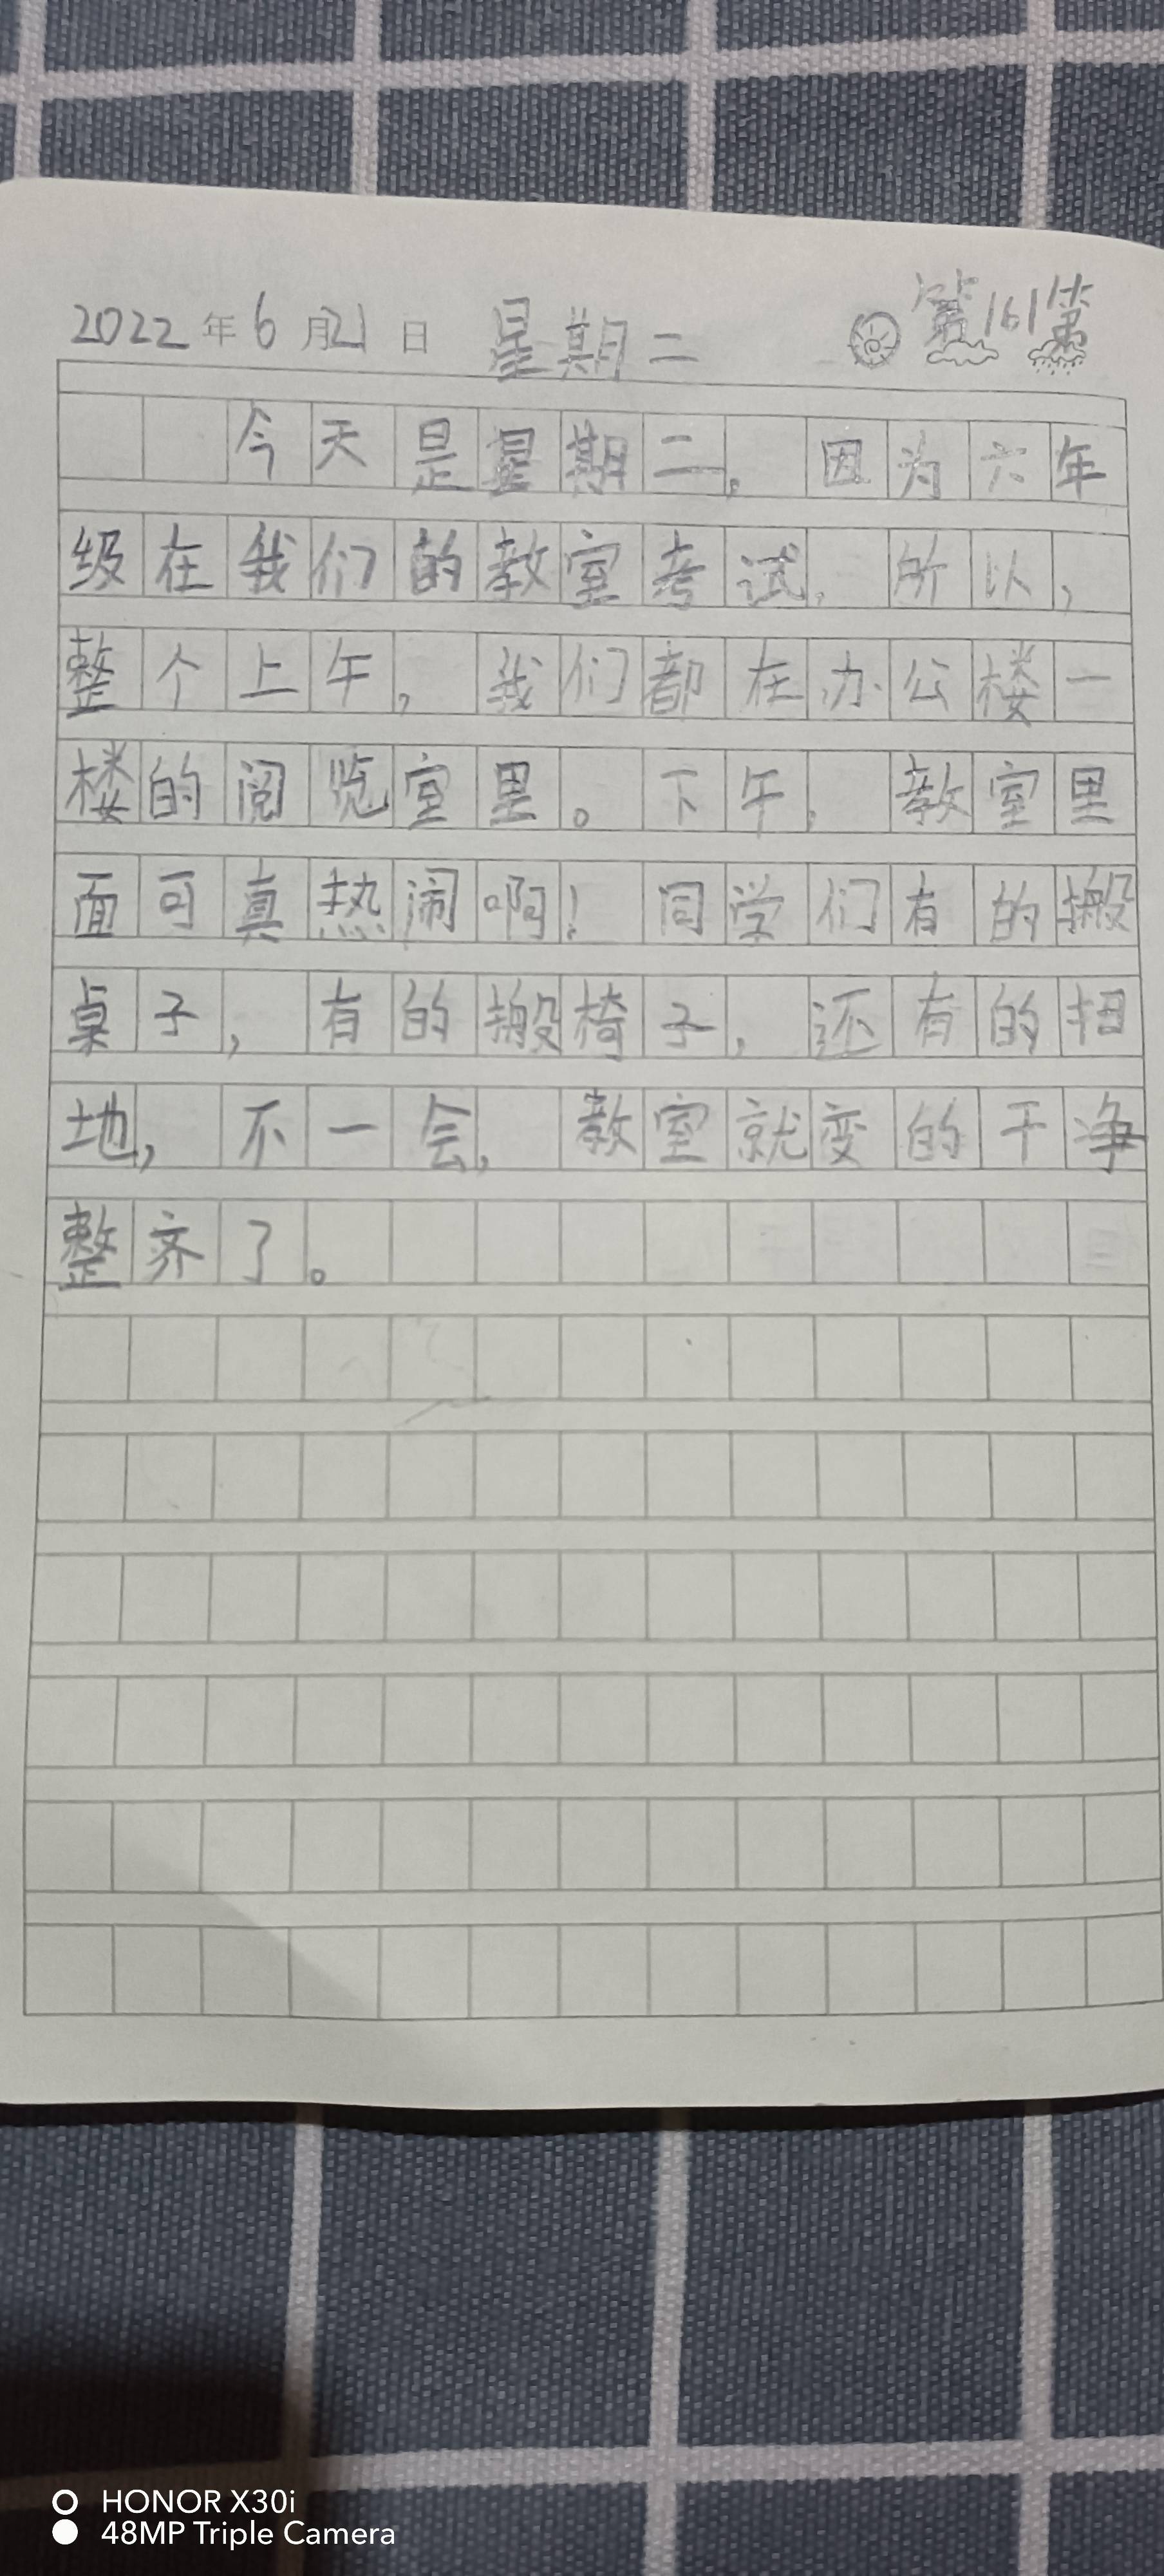 2022年6月21日 星期二 第161第
今天是星期二，因为六年
级在我们的教室考试，所以，
整个上午，我们都在办公楼一
楼的阅览室里。下午，教室里
面可真热闹啊！同学们有的搬
桌子，有的搬椅子，还有的扫
地，不一会，教室就变的干净
整齐了。
HONOR X30i
48MP Triple Camera